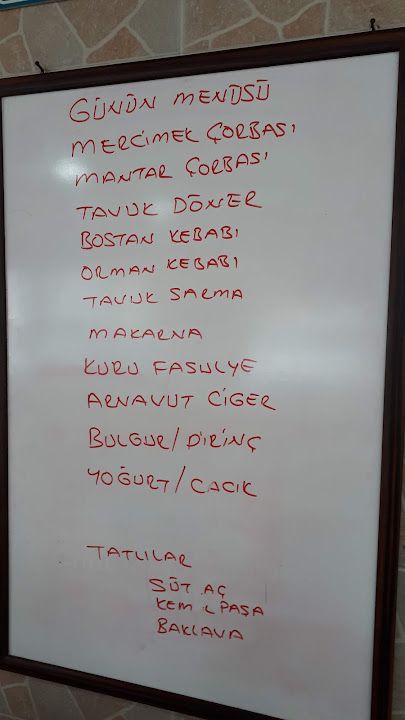 GÜNÜN MENÜSÜ
MERCİMEK ÇORBASI
MANTAR ÇORBASI
TAVUK DÖNER
BOSTAN KEBABI
ORMAN KEBABI
TAVUK SARMA
MAKARNA
KURU FASULYE
ARNAVUT CİGER
BULGUR/PİRİNÇ
YOĞURT/CACIK
TATLILAR
SÜT AÇ
KEM L PAŞA
BAKLAVA